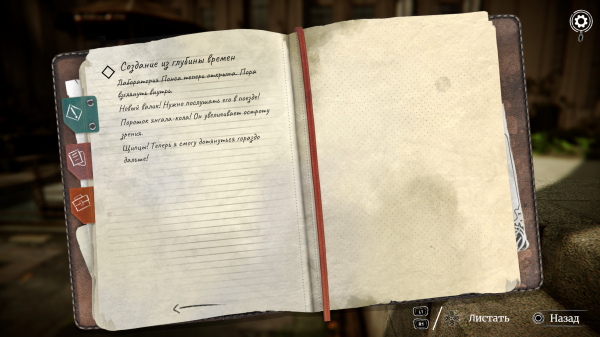 Создание из глубины времен
Лаборатория Понса теперь открыта. Пора
взглянуть внутрь.
Новый валик! Нужно послушать его в поезде!
Порошок янгала-кола! Он увеличивает остроту
зрения.
Щипцы! Теперь я смогу дотянуться гораздо
дальше!
L1
R1
Листать
Назад